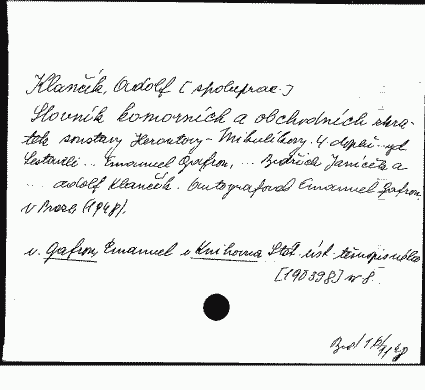 Klančík, Adolf [spoluprac.]
Slovník komorních a obchodních zkra-
tek soustavy Heroutovy-Mikulíkovy. 4 doplň. vyd
Sestavili .. Emanuel Gafron, ... Bedřich Janiček a
... Adolf Klančík. Autografoval Emanuel Gafron,
v Praze (1948).
v. Gafron, Emanuel v Knihovna Stát. úst. těsnopisného
[190398] n 8